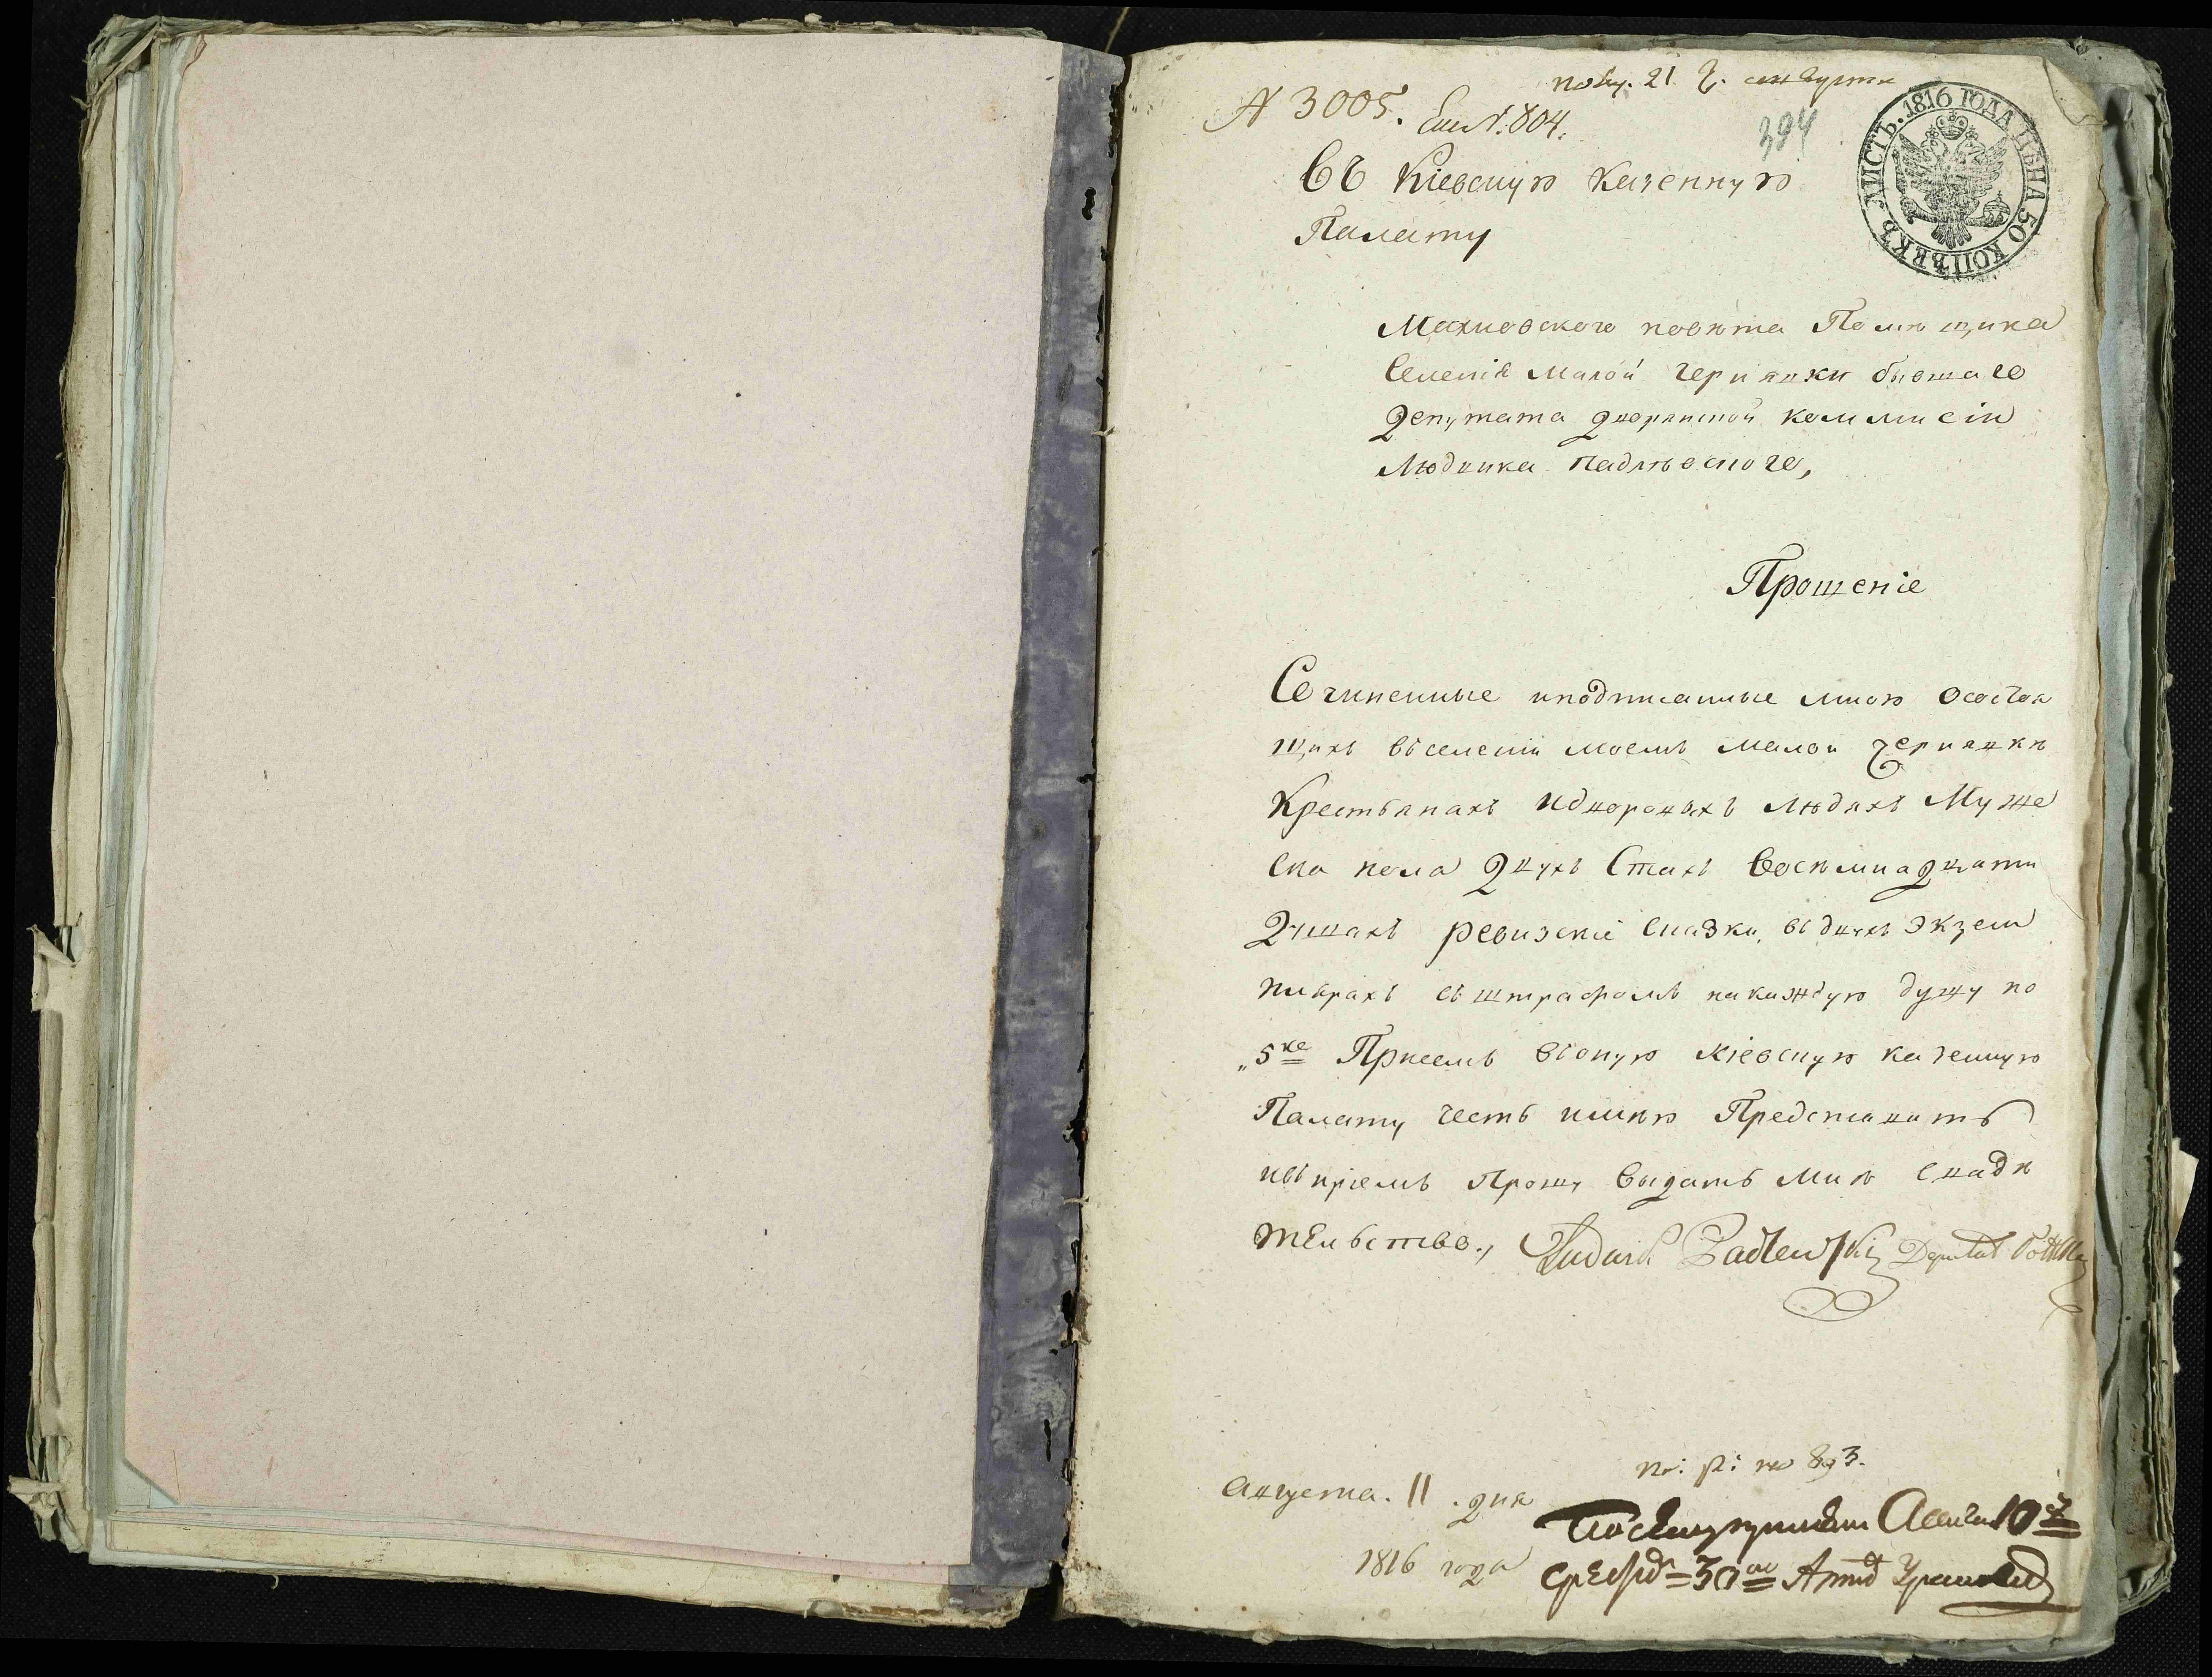 № 3005.
804.
394
ЛИСТЪ. 1816 ГОДА ЦѢНА 50 КОПѢЕКЪ
Въ Кіевскую Казенную
Палату
Махновского повѣта Помѣщика
Селенія Малой Чернявки бывшаго
Депутата дворянской коммисіи
Людвика Падлѣвского,
Прошеніе
Сочиненные иподписанные мною Осостоя
щихъ вѣселеніи моемъ малой Чернявкѣ
Крестьянахъ идворовыхъ людяхъ Муже
ска пола Двухъ Стахъ восѣмнадцати
Душахъ ревизскіе сказки, въ двухъ Экзем
плярахъ съ штрафомъ накаждую душу по
„5 ке При семъ въоную кіевскую казенную
Палату честь имѣю Представить
ивъ пріемѣ Прошу выдать мнѣ свидѣ
тельство., Ludwik Padlewski Deputat
Августа. 11 . дня
1816 года